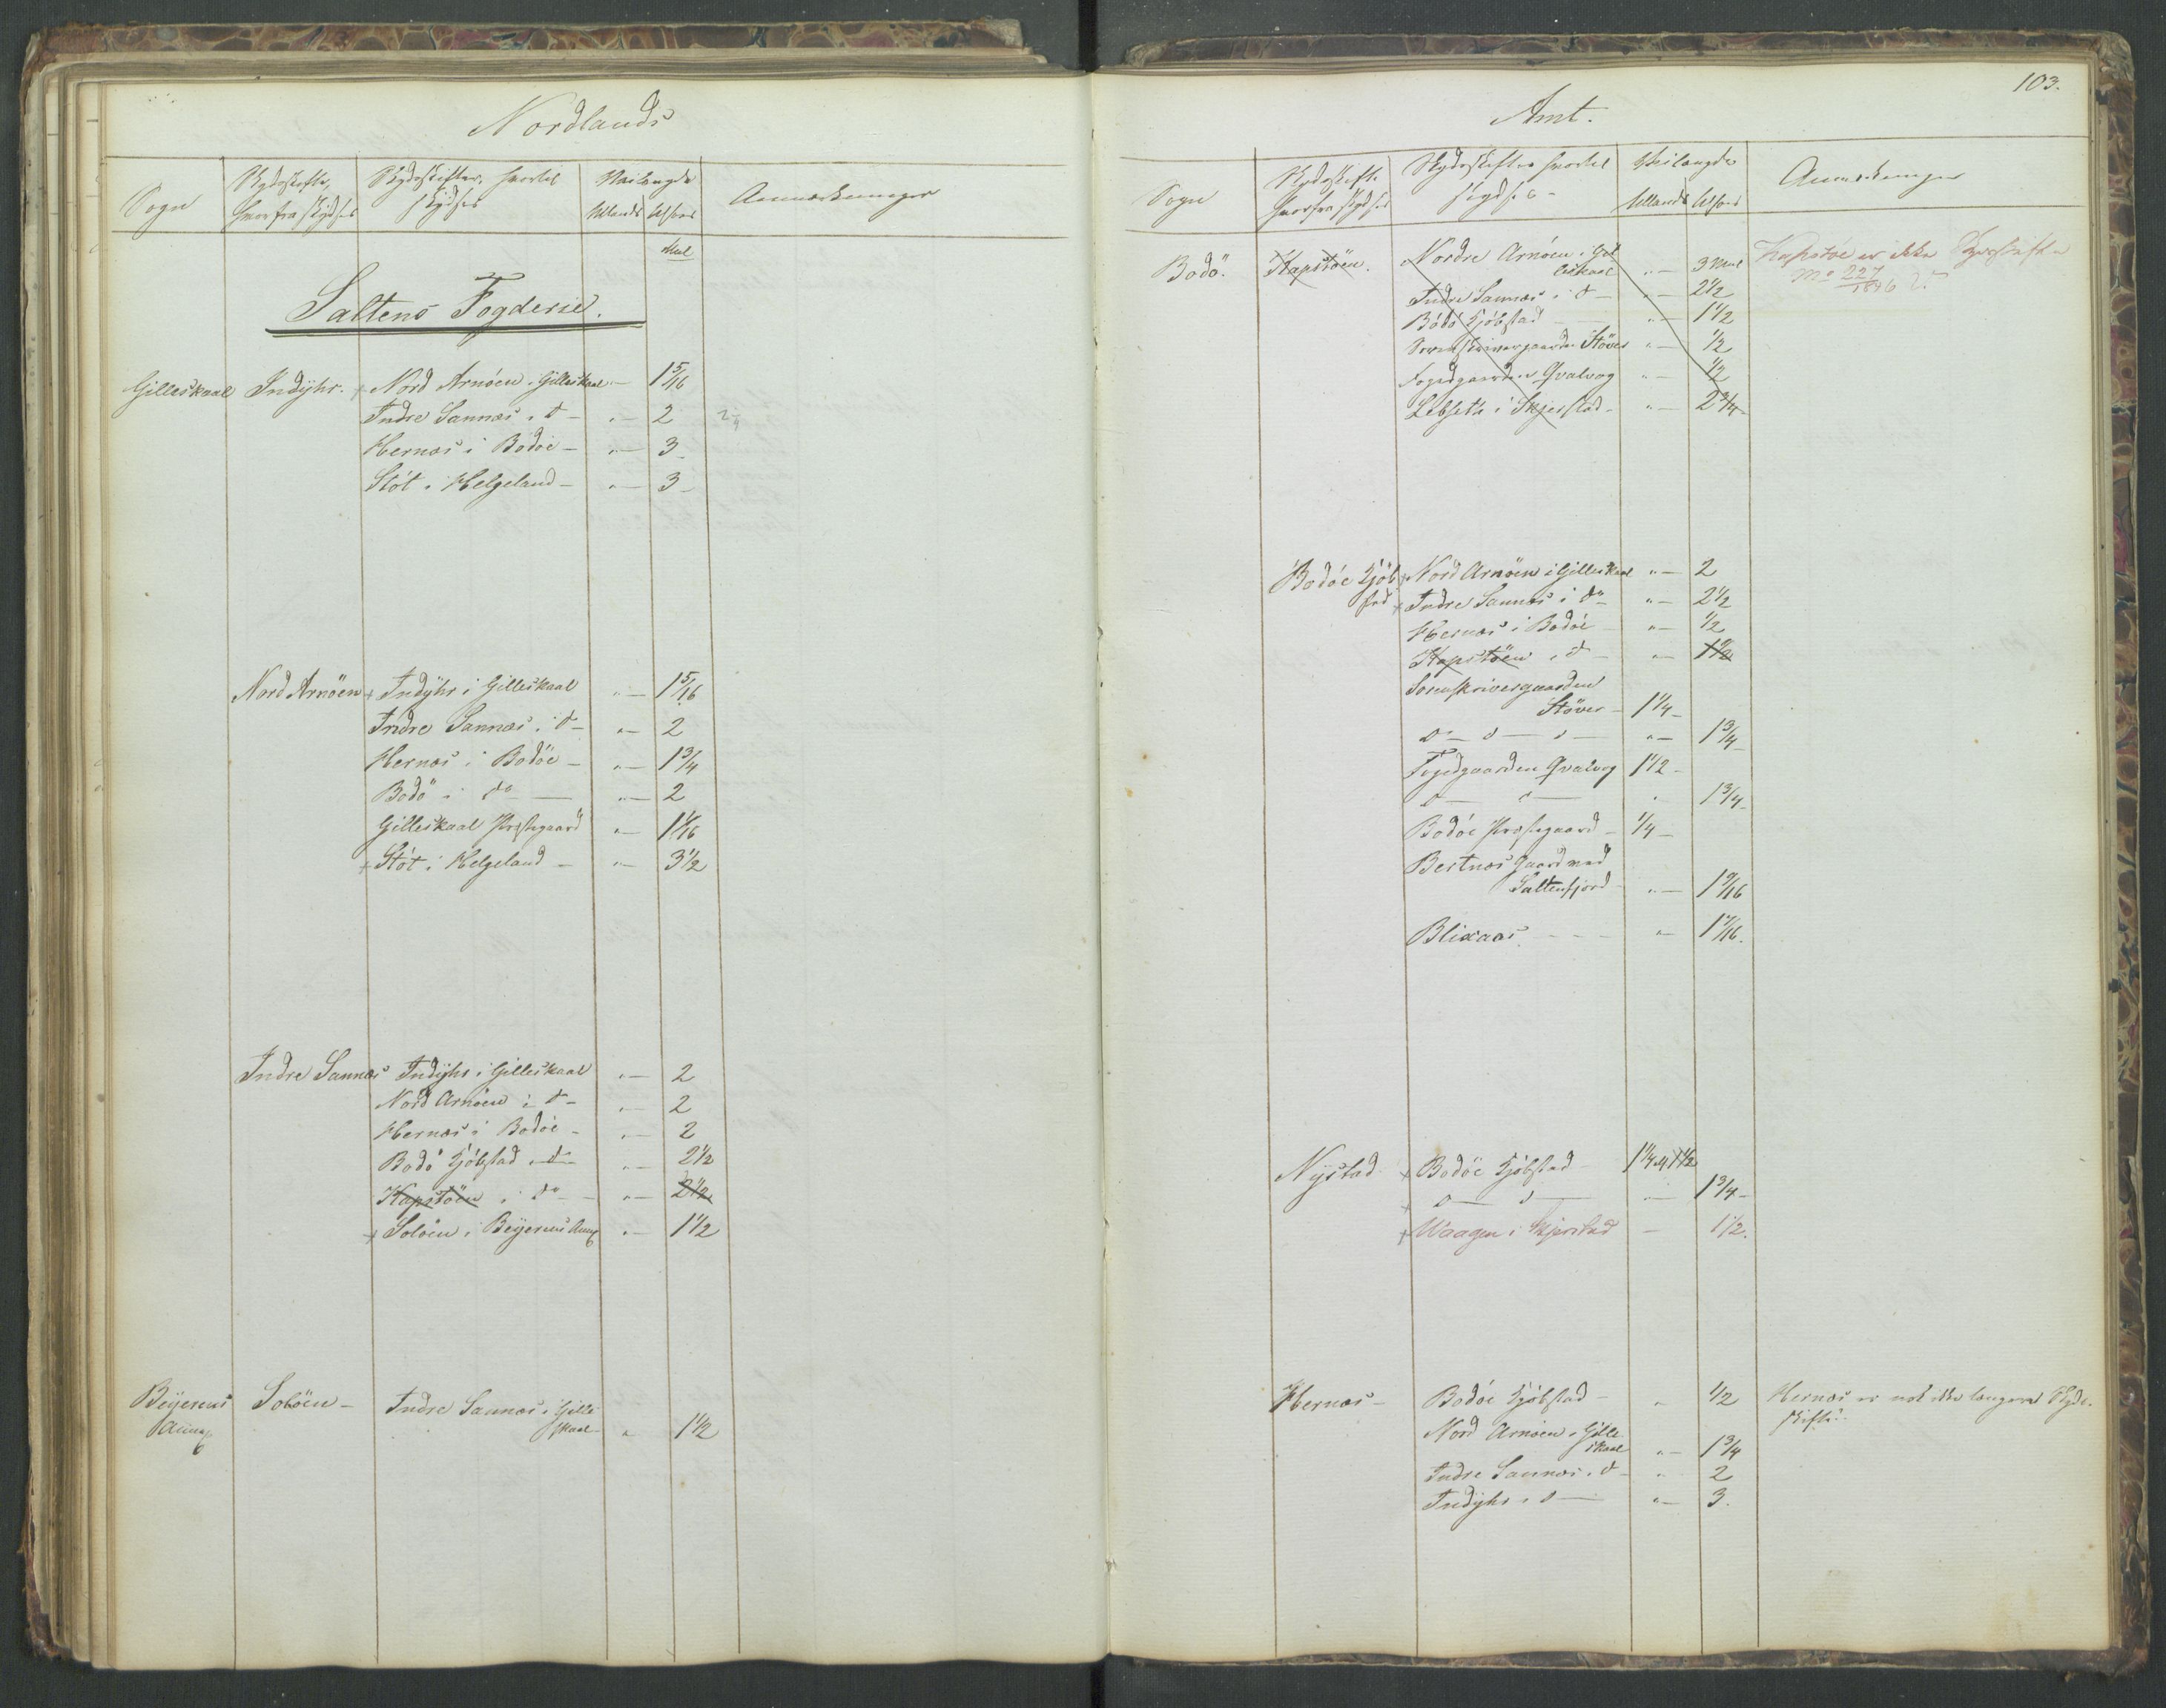 Nordlands
Sogn
Skydsskifte, hvorfra skydses
Skydsskifter, hvortil skydses
Veilængde
tillands
tilsøes
Anmærkninger
Miil
Saltens Fogderie.
Gilleskaal Indyhr. + Nord Arnöen i Gilleskaal " — 1 5/16
Indre Sannæs i d— " — 2
Hernæs i Bodöe — " — 3 —
Stöt i Helgeland — " — 3 —
Nord Arnöen + Indÿhr i Gilleskaal " — 1 5/16
Indre Sannæs i d— " — 2
Hernæs i Bodöe — " — 1 3/4
Bodö i do — " — 2
Gilleskaal Præstegaard " —
+ Stöt i Helgeland — " — 3 1/2
Indre Sannæs Indÿhr i Gilleskaal " — 2
Nord Arnöen i d— " — 2
Hernæs i Bodöe — " — 2
Bodö Kjöbstad i d— " — 2 1/2
Kapstöen i do — " — 2 1/2
+ Solöen i Beÿerens Annex " — 1 1/2
Beÿerens Solöen — Indre Sannæs i Gille
Annex skaal — " 1 1/2
103.
Amt.
Sogn
Skydsskifte hvorfra skydses
Skydsskifter hvortil skydses —
Veilængde
tillands
tilsöes
Anmærkninger
Bodö. Kapstöen. Nordre Arnöen i Gil
leskaal " — 3 Miil
Kapstöe er ikke Skydsskifte
227/1846
Indre Sannæs i d— " — 2 1/2
Bödö Kjöbstad — " — 1 1/2
Sorenskrivergaarden Stöver " — 1/2
Fogedgaarden Qvalvog " — 1/2
Lebseth i Skjerstad — " — 2 3/4 —
Bodöe Kjöb + Nord Arnöen i Gilleskaal " — 2
stad + Indre Sannæs i do " — 2 1/2
Hernæs i Bodöe " — 1/2
Kapstöen i d— " — 1 1/2
Sorenskrivergaarden
Stöver — 1 1/4 —
d— d— d— " — 1 3/4 —
Fogedgaarden Qvalvog 1 1/2 —
d— d— " 1 3/4 —
Bodöe Præstegaard — 1/4 —
Bertnæs Gaard ved
Saltenfjord — " —
Blixaas — — — " —
Nÿstad + Bodöe Kjöbstad — 1 1/4 1 1/2
+ d— d— " — 1 3/4 —
+ Waagen i Skjerstad — 1 1/2.
Hernæs — Bodöe Kjöbstad — " 1/2 Hernæs er nok ikke længere Skyds-
skifte.
Nord Arnöen i Gille
skaal " — 1 3/4
Indre Sannæs i d— " — 2
Indÿhr i d— " — 3.